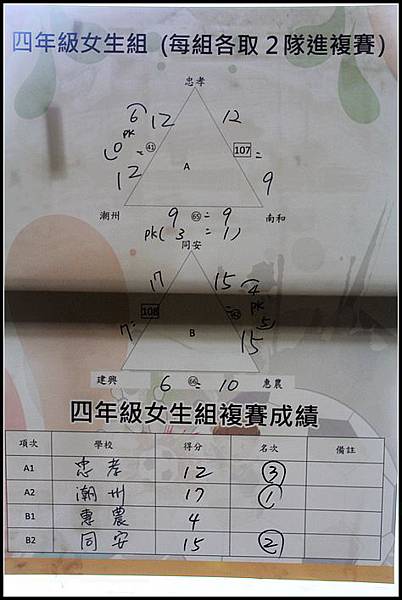 四年級女生組（每組各取2隊進複賽）
忠孝
6 12 12
PK
0 = 41 107 =
A
12 9
潮州 9 65 = 9 南和
PK( 3 = 1)
同安
17 15 (4
108 PK
7 B 5)
15
建興 6 66 = 10 惠農
四年級女生組複賽成績
項次 學校 得分 名次 備註
A1 忠孝 12 ③
A2 潮州 17 ①
B1 惠農 4
B2 同安 15 ②